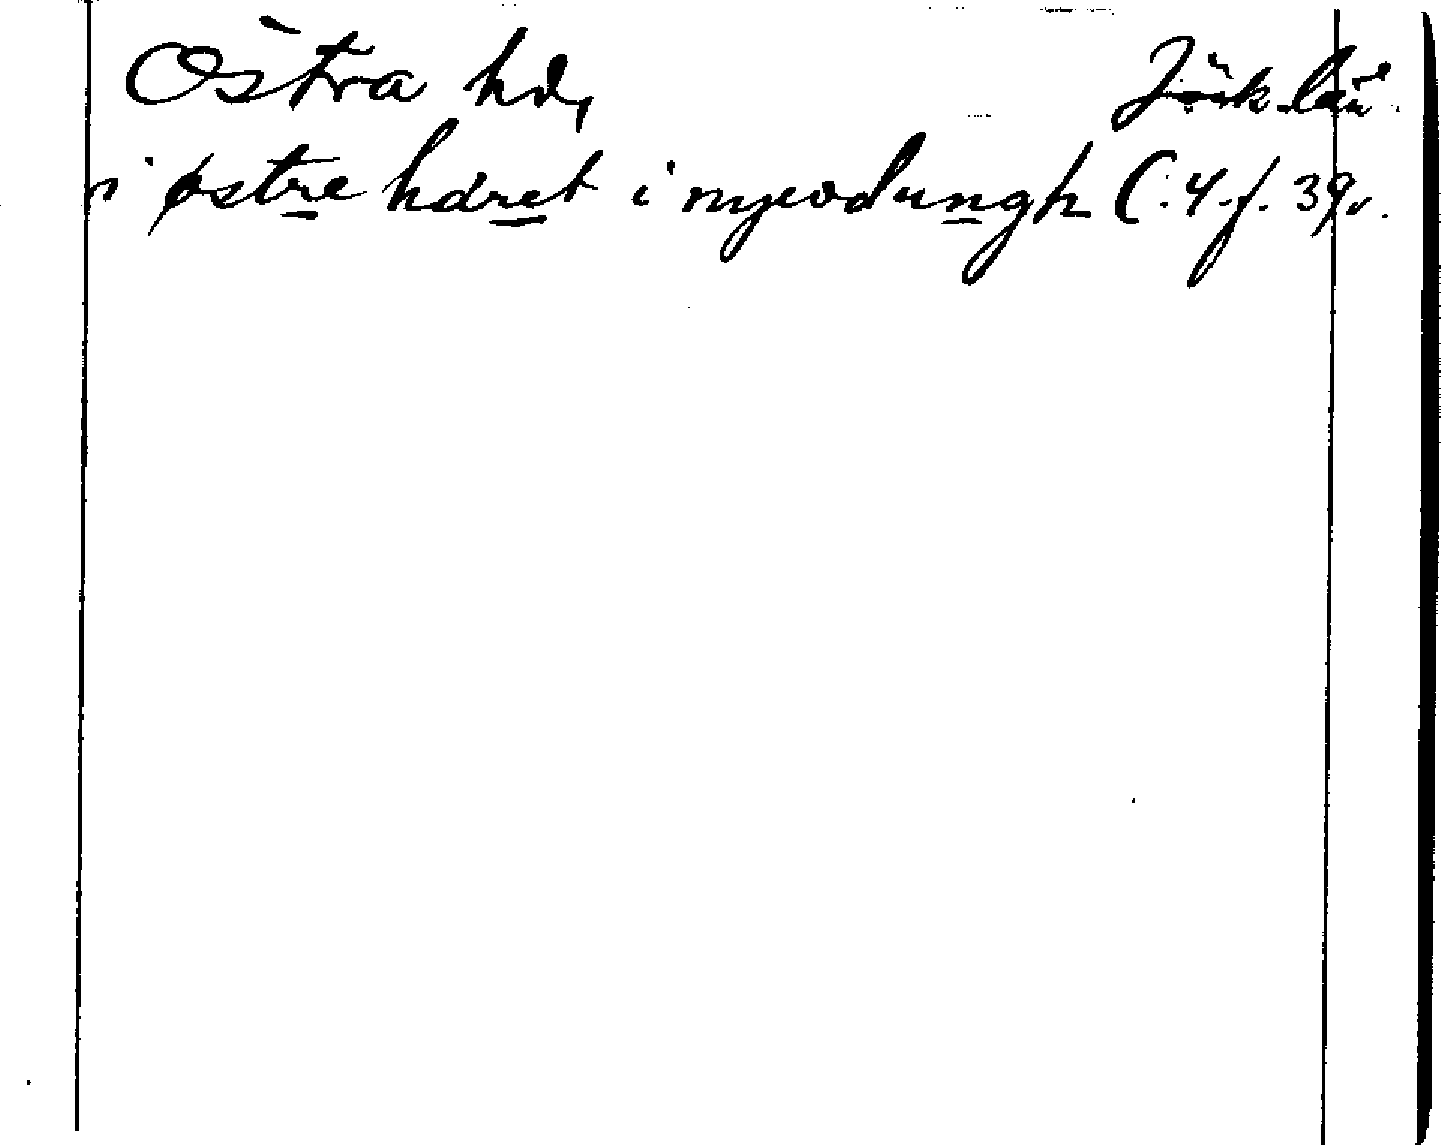 Östra hd, Jönk. län.
i østre hdret i nyevdungh C. 4. f. 39v.